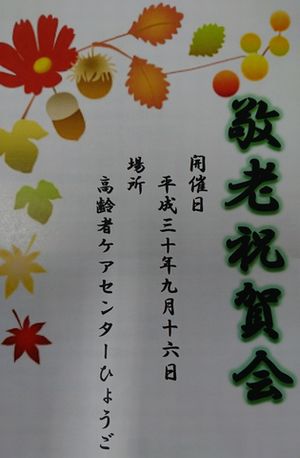 敬老祝賀会
開催日
平成三十年九月十六日
場所
高齢者ケアセンターひょうご